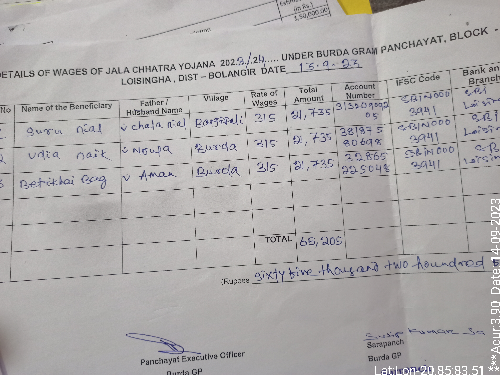 1,50,000.00
DETAILS OF WAGES OF JALA CHHATRA YOJANA 2023/24..... UNDER BURDA GRAM PANCHAYAT, BLOCK -
LOISINGHA, DIST – BOLANGIR DATE 13-9-23
No Name of the Beneficiary Father / Husband Name Village Rate of Wages Total Amount Account Number IFSC Code Bank and Branch
Guru nial chala nial 315 21,735 SBIN000 3941 SBI
2 Udia naik Nouda Burda 315 21,735 381875 80698 SBIN000 3941 SBI Loisin
3 Betikhai Bag Aman Burda 315 21,735 32865 225048 SBIN000 3941
TOTAL 65,205
(Rupees sixty five thousand two houndred
Panchayat Executive Officer
Burda GP
Kumar
Sarapanch
Burda GP
***Acur:3.90 Date:14-09-2023
Lat:Lon-20.85:83.51